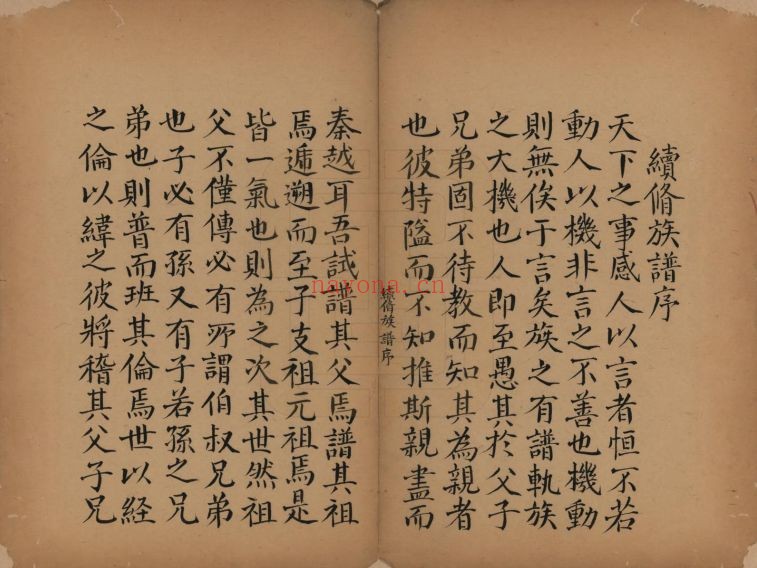 續脩族譜序
天下之事感人以言者恒不若
動人以機非言之不善也機動
則無俟于言矣族之有譜軌族
之大機也人即至愚其於父子
兄弟固不待教而知其為親者
也彼特隘而不知推斯親盡而
續脩族譜序
秦越耳吾試譜其父焉譜其祖
焉遞遡而至子支祖元祖焉是
皆一氣也則為之次其世然祖
父不僅傳必有所謂伯叔兄弟
也子必有孫又有子若孫之兄
弟也則普而班其倫焉世以経
之倫以緯之彼將稽其父子兄
nayona.cn